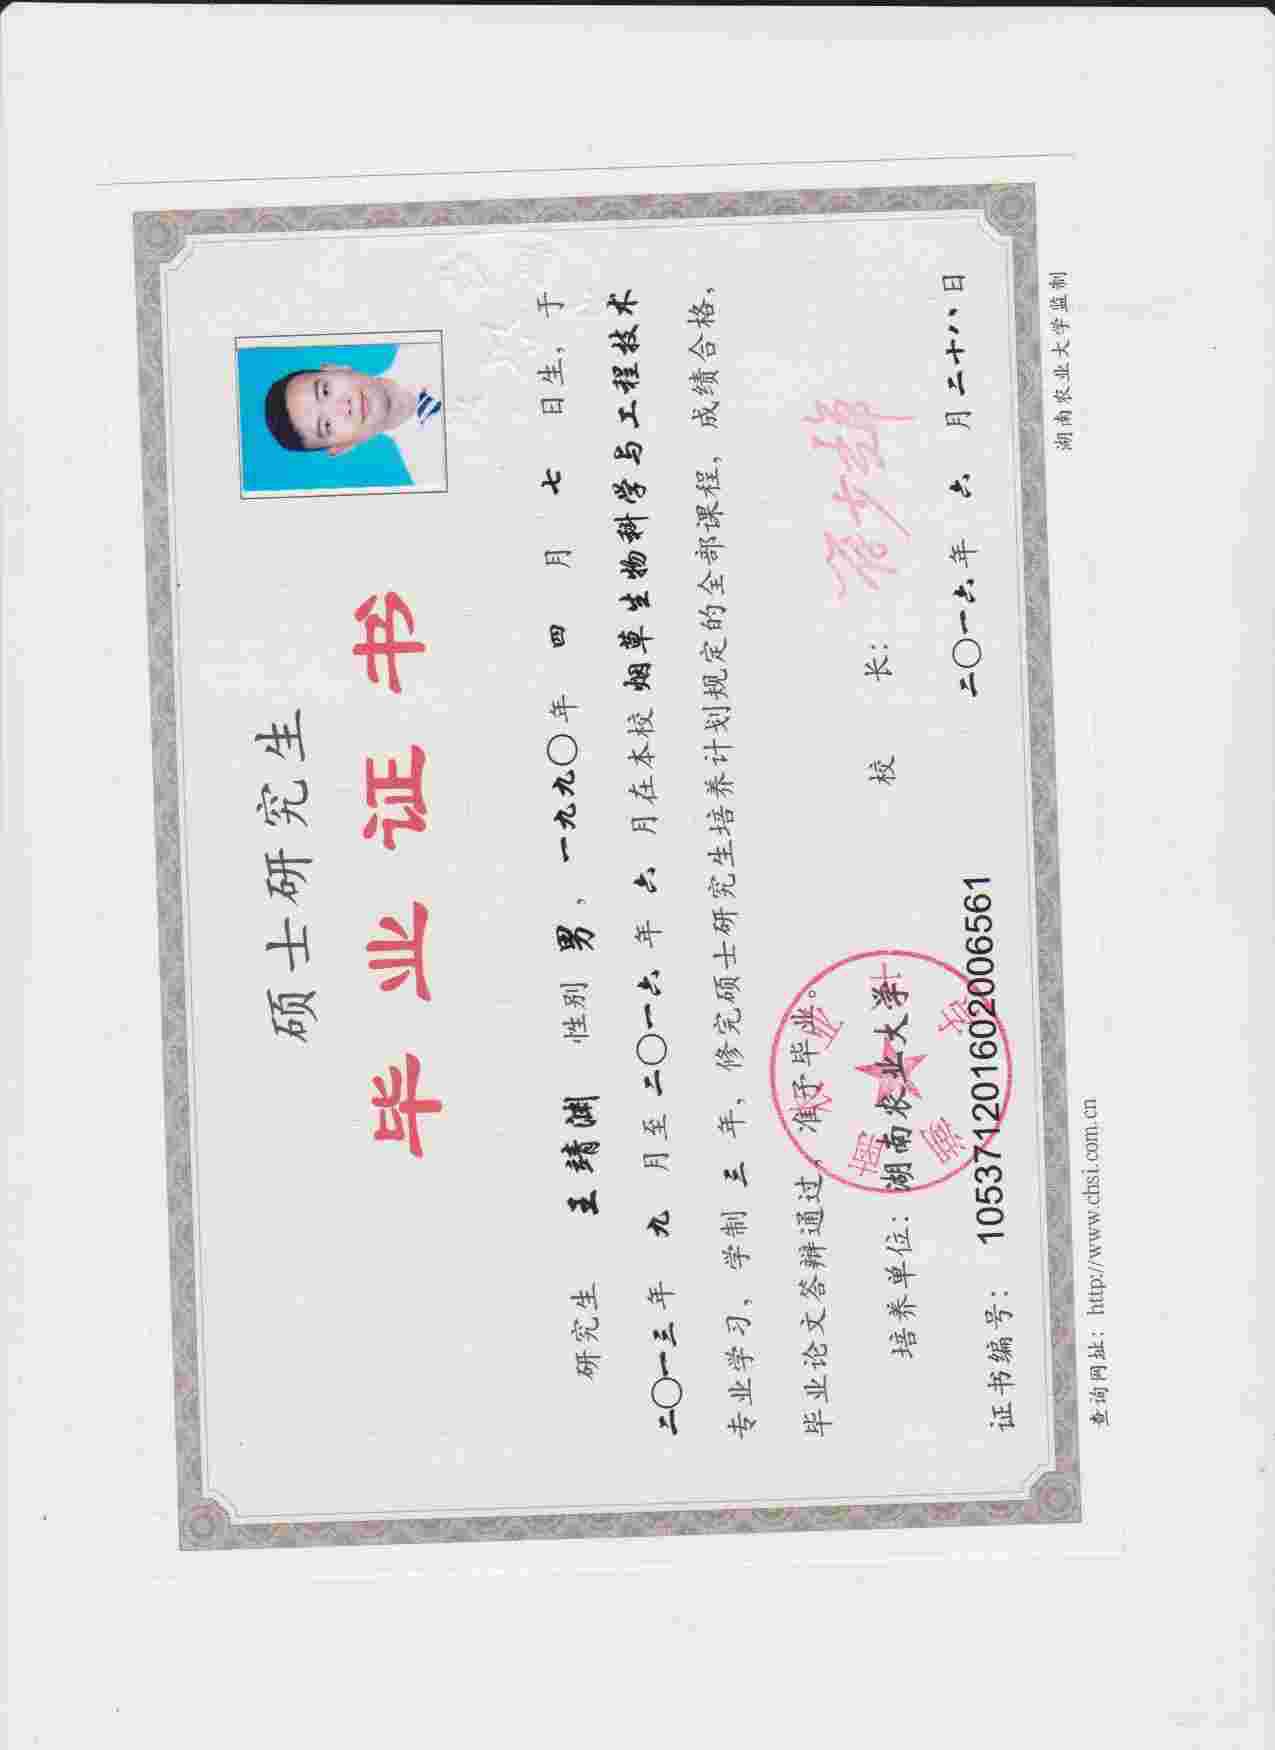 硕士研究生
毕业证书
研究生 王靖渊 性别 男，一九九〇年 四 月 七 日生，于
二〇一三年 九 月至二〇一六年 六 月在本校 烟草生物科学与工程技术
专业学习，学制 三 年，修完硕士研究生培养计划规定的全部课程，成绩合格，
毕业论文答辩通过，准予毕业。
培养单位：湖南农业大学 校 长：
证书编号：105371201602006561 二〇一六年 六 月二十八日
查询网址：http://www.chsi.com.cn 湖南农业大学监制